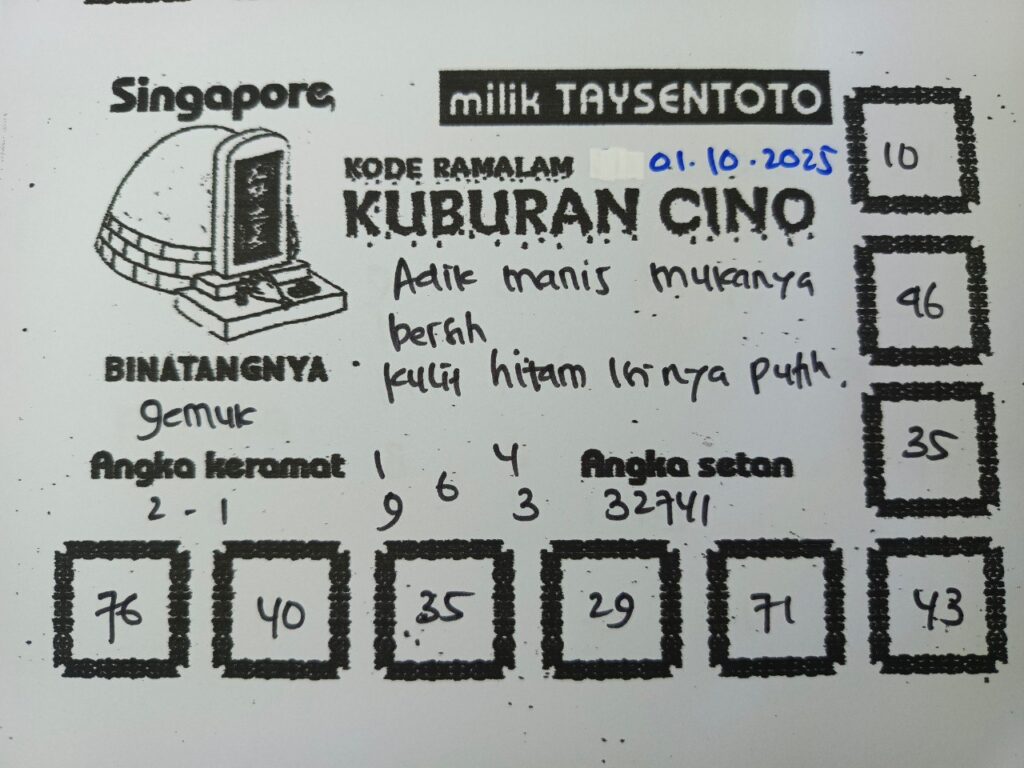 Singapore,
milik TAYSENTOTO
KODE RAMALAM 01.10.2025
KUBURAN CINO
Adik manis mukanya
bersih
kulit hitam isinya putih.
BINATANGNYA
gemuk
Angka keramat
2 - 1
1 4
6
9 3
Angka setan
32741
10
96
35
76 40 35 29 71 43